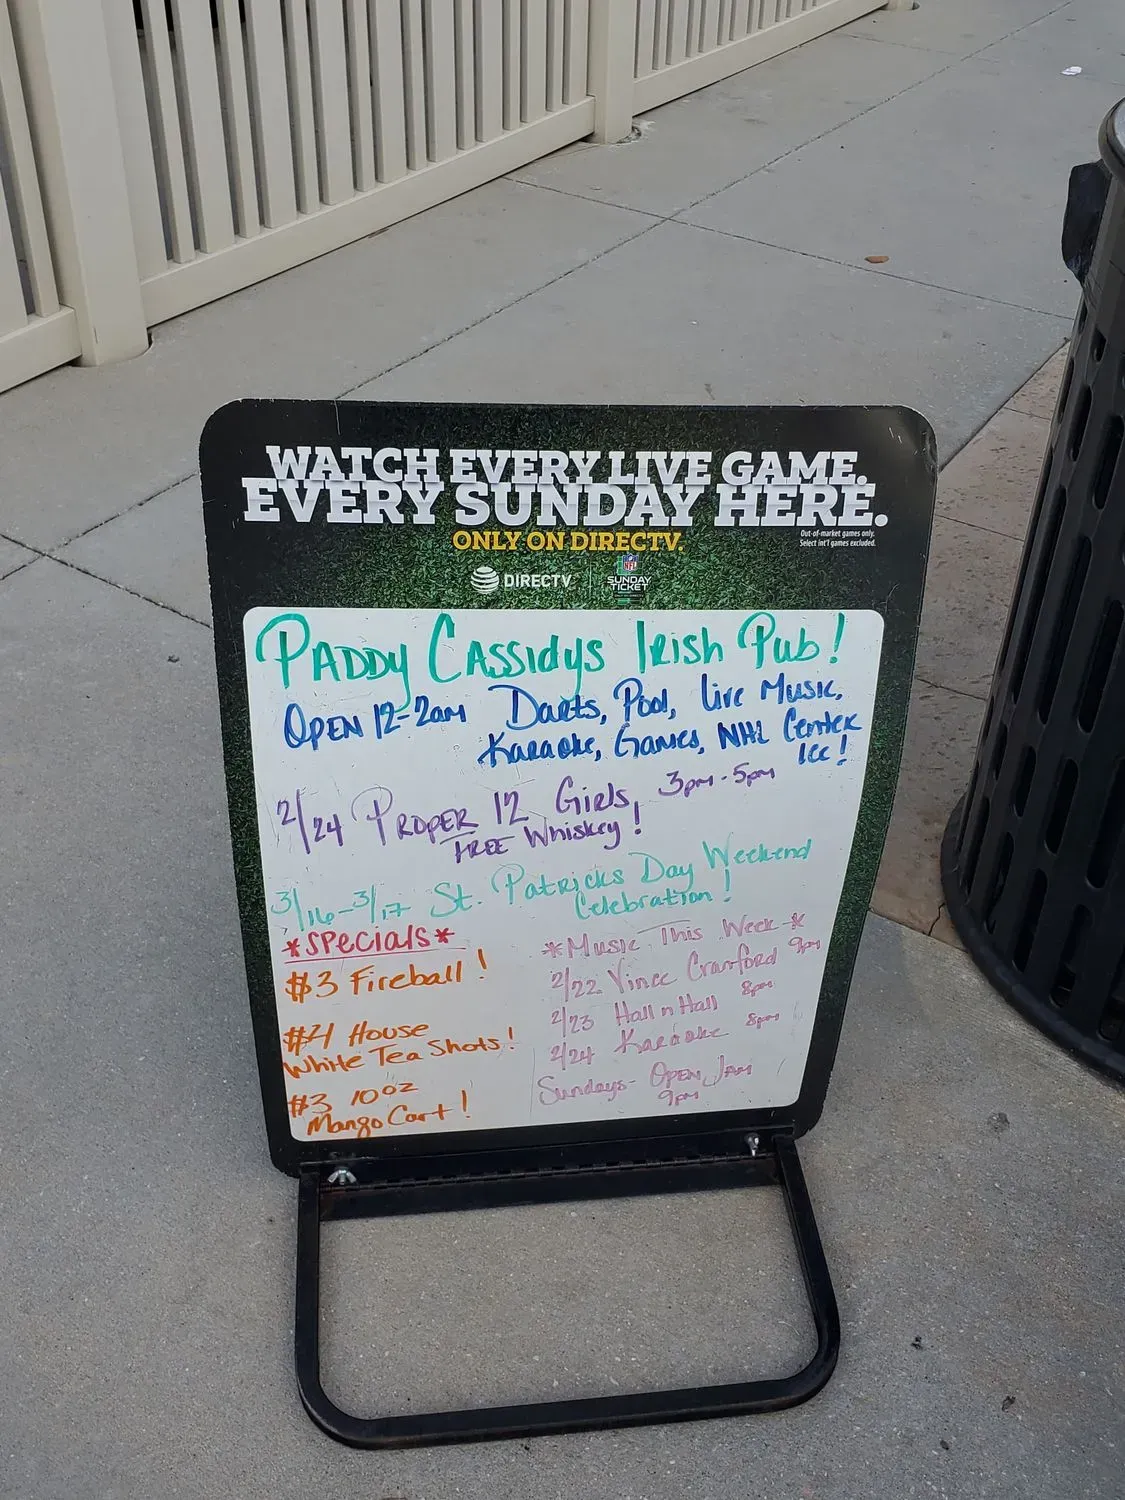 WATCH EVERY LIVE GAME.
EVERY SUNDAY HERE.
ONLY ON DIRECTV.
Out-of-market games only.
Select int'l games excluded.
DIRECTV
NFL
SUNDAY
TICKET
PADDY CASSIDYS IRISH PUB!
OPEN 12-2am Darts, Pool, Live Music,
Karaoke, Games, NHL Center
Ice!
2/24 PROPER 12 Girls, 3pm-5pm
FREE Whiskey!
3/16-3/17 St. Patricks Day Weekend
Celebration!
*Specials*
$3 Fireball!
$4 House
White Tea Shots!
$3 10oz
Mango Cart!
*Music This Week*
2/22 Vince Crawford 9pm
2/23 Hall n Hall 8pm
2/24 Karaoke 8pm
Sundays- Open Jam
9pm